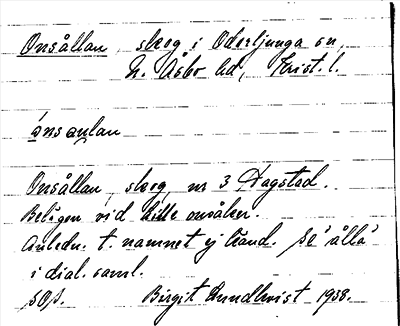 Onsållan, skog i Oderljunga sn,
N. Åsbo hd, Krist. l.
ánsaulan
Onsållan, skog, nr 3 Hagstad.
Belägen vid lille onsåker.
Anledn. t. namnet ej känd. Se "ålla"
i dial. saml.
Birgit Lundkvist 1938.